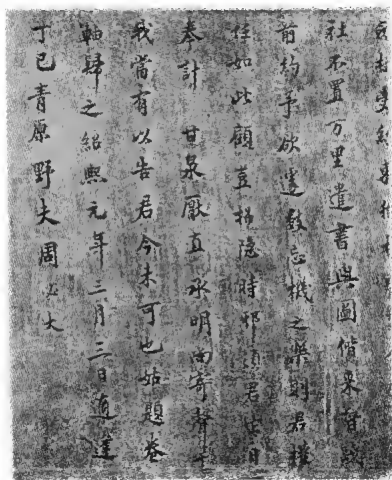 社不置万里遣書與圖偕来督
前約予欲遂鼗忘機之樂則君
任如此顧豈招隱時邪須君
奉計甘泉厭直承明而寄聲
我當有以告君今未可也姑題卷
軸歸之紹熙元年三月三日適逢
丁巳青原野夫周必大